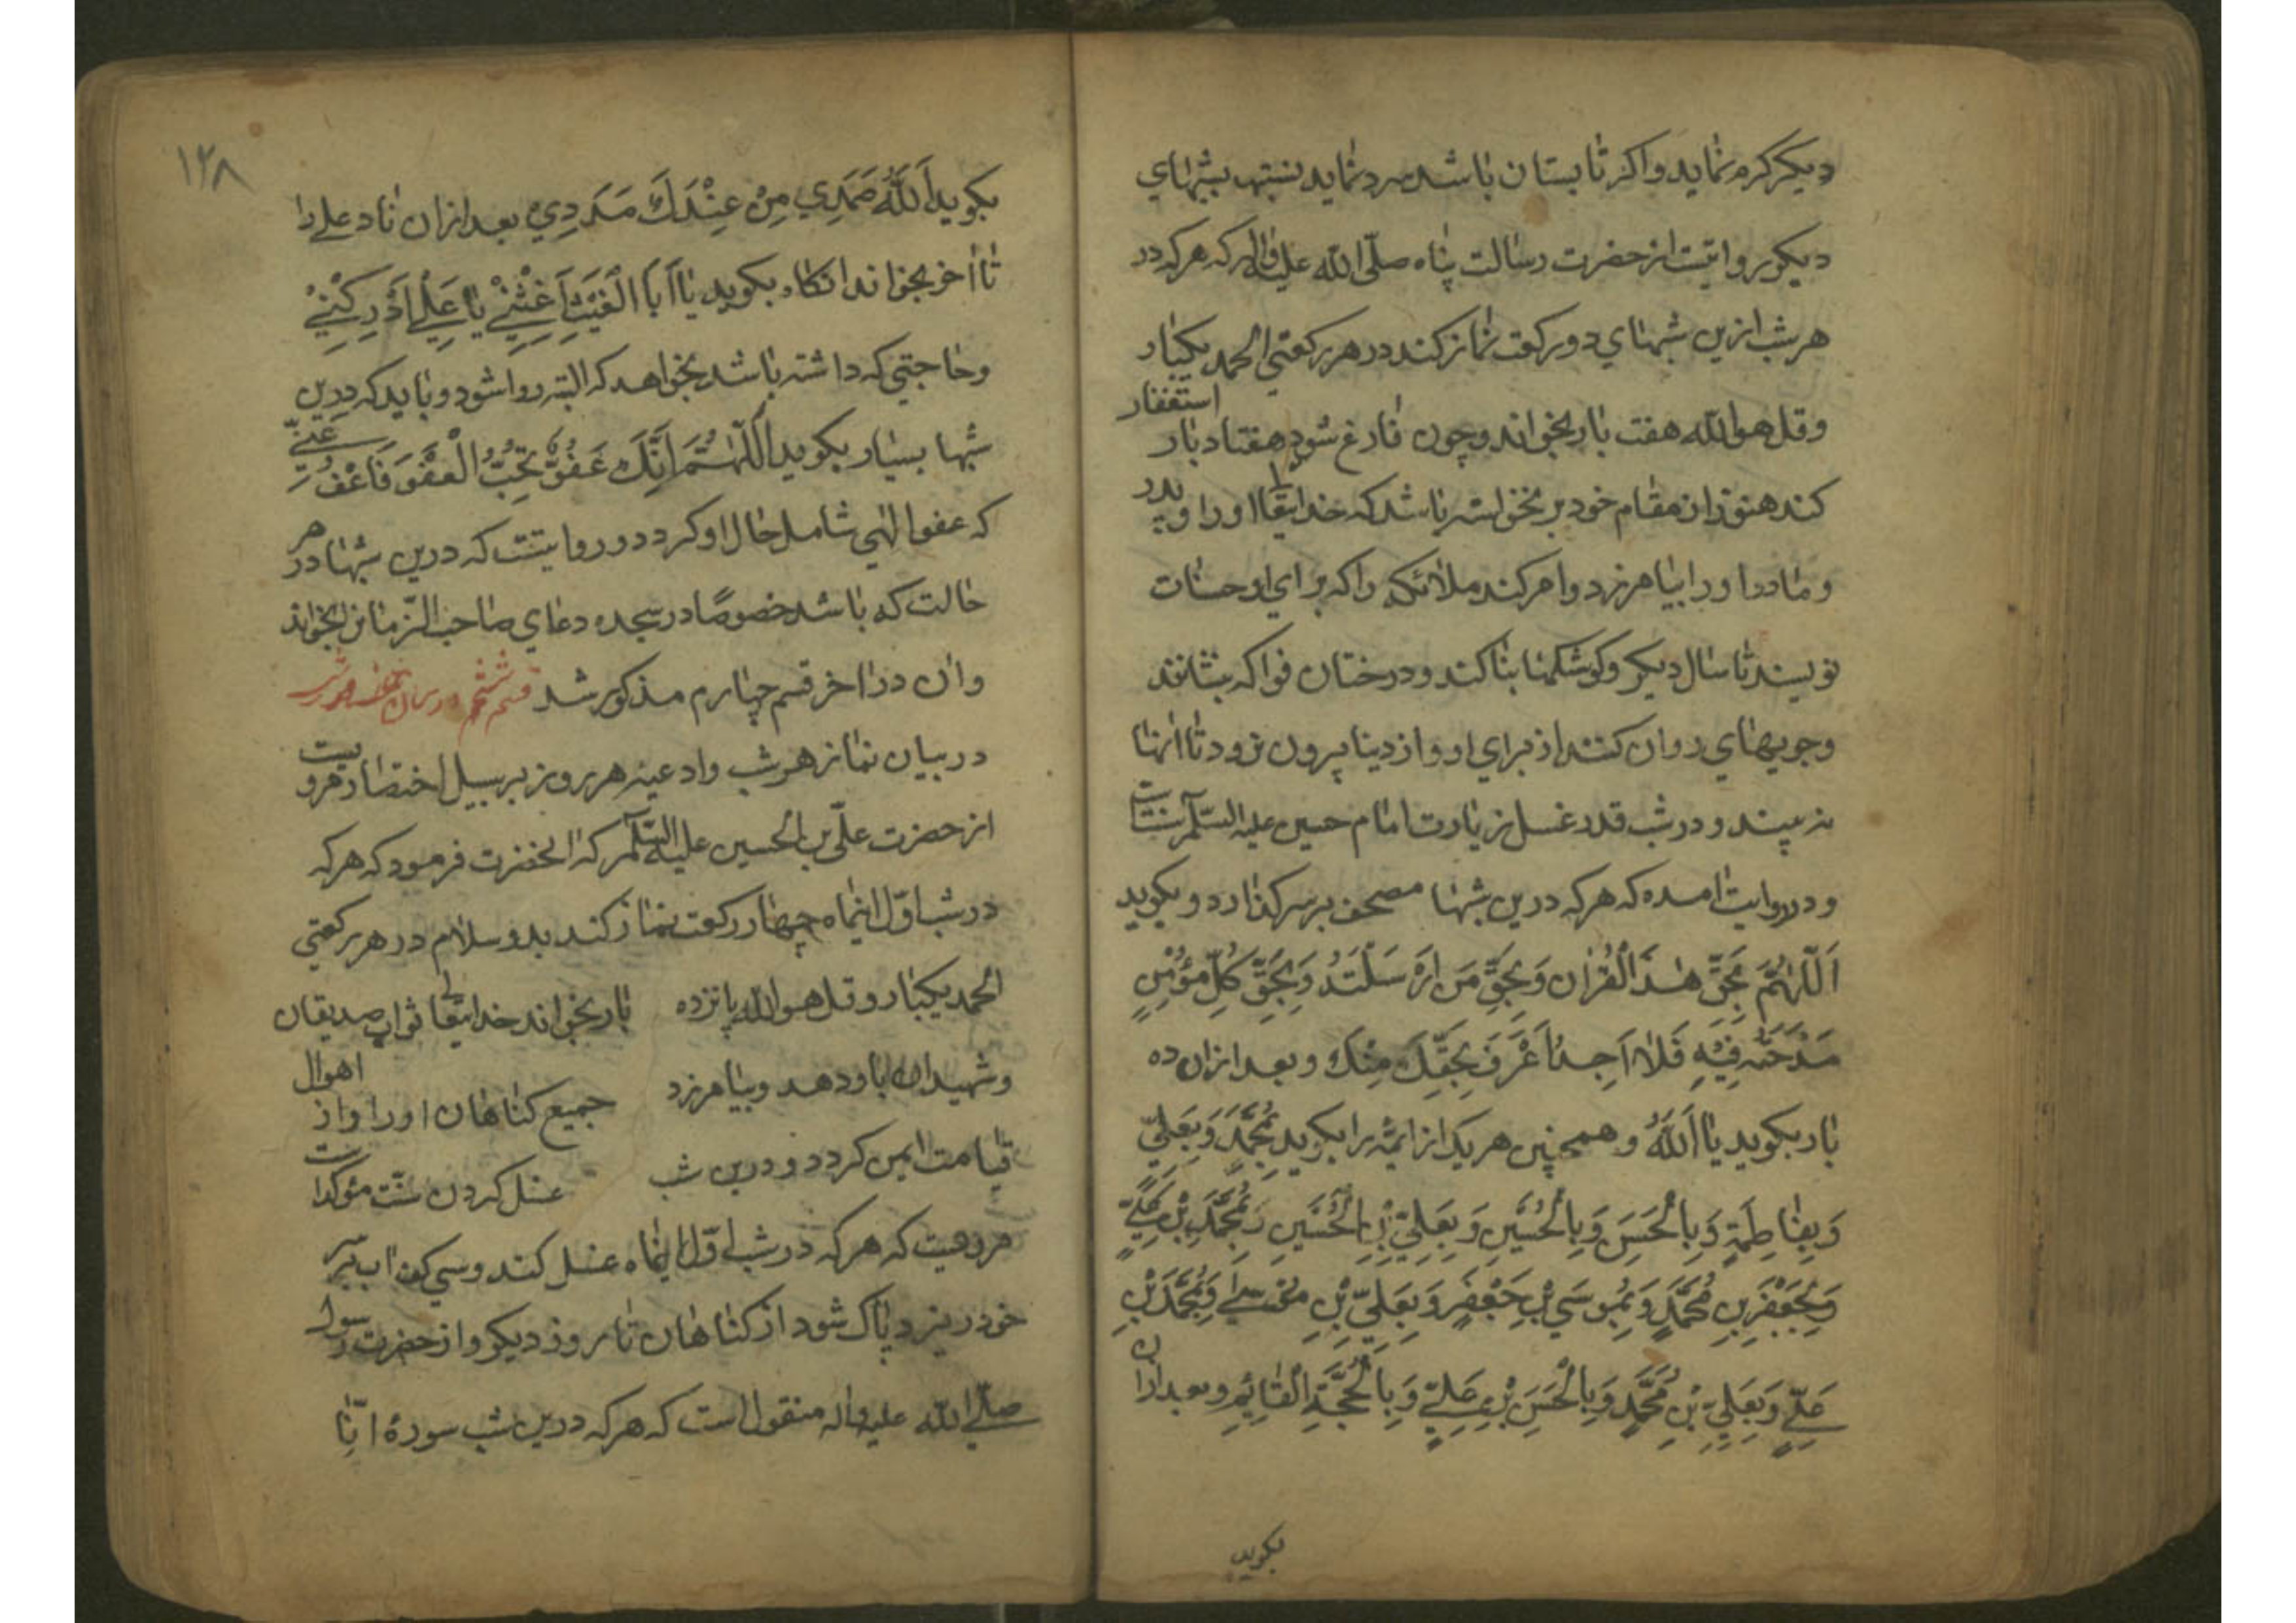 دیکر کرم نماید و اکر تابستان باشد سرد نماید نسبتبه بشبهای
دیکر و روایتست از حضرت رسالت پناه صلّی الله علیه واله که هر که در
هر شب ازین شبهای دو رکعت نماز کند در هر رکعتی الحمد یکبار
وقل هو الله هفت بار بخواند و چون فارغ شود هفتاد بار استغفار
کند هنوز از مقام خود بر نخواسته باشد که خدایتعالی او را و پدر
و مادر او را بیامرزد و امر کند ملائکه را که برای او حسنات
نویسند تا سال دیکر و کوشکها بنا کند و درختان فواکه بنشانند
وجویهای روان کنند از برای او و از دینا بیرون نرود تا انها
نه بیند و در شب قدر غسل زیارت امام حسین علیه السّلم سنتست
و در روایت امده که هر که درین شبها مصحف بر سر کذارد و بکوید
اَللّٰهُمَّ بِحَقِّ هٰذَا الْقُرْاٰنِ وَبِحَقِّ مَن اَرْسَلْتَهُ وَبِحَقِّ كُلِّ مُؤْمِنٍ
مَدَحْتَهُ فِیْهِ فَلَا اَحِدُ اَعْرَفَ بِحَقِّكَ مِنْكَ و بعد ازان ده
بار بکوید یا اَللّٰهُ و همچنین هر یک از ایمّه را بکوید بِمُحَمَّدٍ وَبِعَلِيّ
وَبِفَاطِمَةِ وَبِالْحَسَنِ وَبِالْحُسَيْنِ وَبِعَلِيّ بْنِ الْحُسَيْنِ وَبِمُحَمَّدِ بْنِ عَلِيٍّ
وَبِجَعْفَرِ بِنِ مُحَمَّدٍ وَبِمُوسَي بْنِ جَعْفَرٍ وَبِعَلِيّ بْنِ مُوْسٰي وَبِمُحَمَّدَ بْنِ
عَلِيٍّ وَبِعَلِيّ بْنِ مُحَمَّدٍ وَبِالْحَسَنِ بْنِ عَلِيٍّ وَبِالْحُجَّةِ الْقَایِمِ و بعد ازان
بکوید
۱۲۸
بکوید اَللّٰهُ صَمَدِي مِنْ عِنْدَكَ مَدَدِيْ بعد ازان ناد علی را
تا اخر بخواند انکاه بکوید یا اَبَا الْغَیْثِ اَغِثْنِيْ یَا عَلِيُّ اَدْرِكْنِيْ
و حاجتی که داشته باشد بخواهد که البته روا شود و باید که درین
شبها بسیار بکوید اَللّٰهُمَّ اِنَّكَ عَفُوٌّ تُحِبُّ الْعَفْوَ فَاعْفُ عَنّي
که عفو الهی شامل حال او کردد و روایتست که درین شبها در هر
حالت که باشد خصوصًا در سجده دعای صاحب الزّمان را بخواند
و ان در اخر قسم چهارم مذکور شد قسم ششم در بیان نماز هر شب
در بیان نماز هر شب و ادعیه هر روز بر سبیل اختصار مرویست
از حضرت علیّ بن الحسین علیه السّلم که انحضرت فرمود که هر که
در شب اوّل اینماه چهار رکعت نماز کند بدو سلام در هر رکعتی
الحمد یکبار و قل هو الله پانزده بار بخواند خدایتعالی ثواب صدیقان
و شهیدان باو دهد و بیامرزد جمیع کناهان او را و از اهوال
قیامت ایمن کردد و درین شب غسل کردن سنّت مؤکداست
مرویست که هر که در شب اوّل اینماه غسل کند و سی کف اب بر سر
خود ریزد پاک شود از کناهان تا روز دیکر و از حضرت رسول
صلّي الله علیه واله منقول است که هر که درین شب سورهٔ انّا